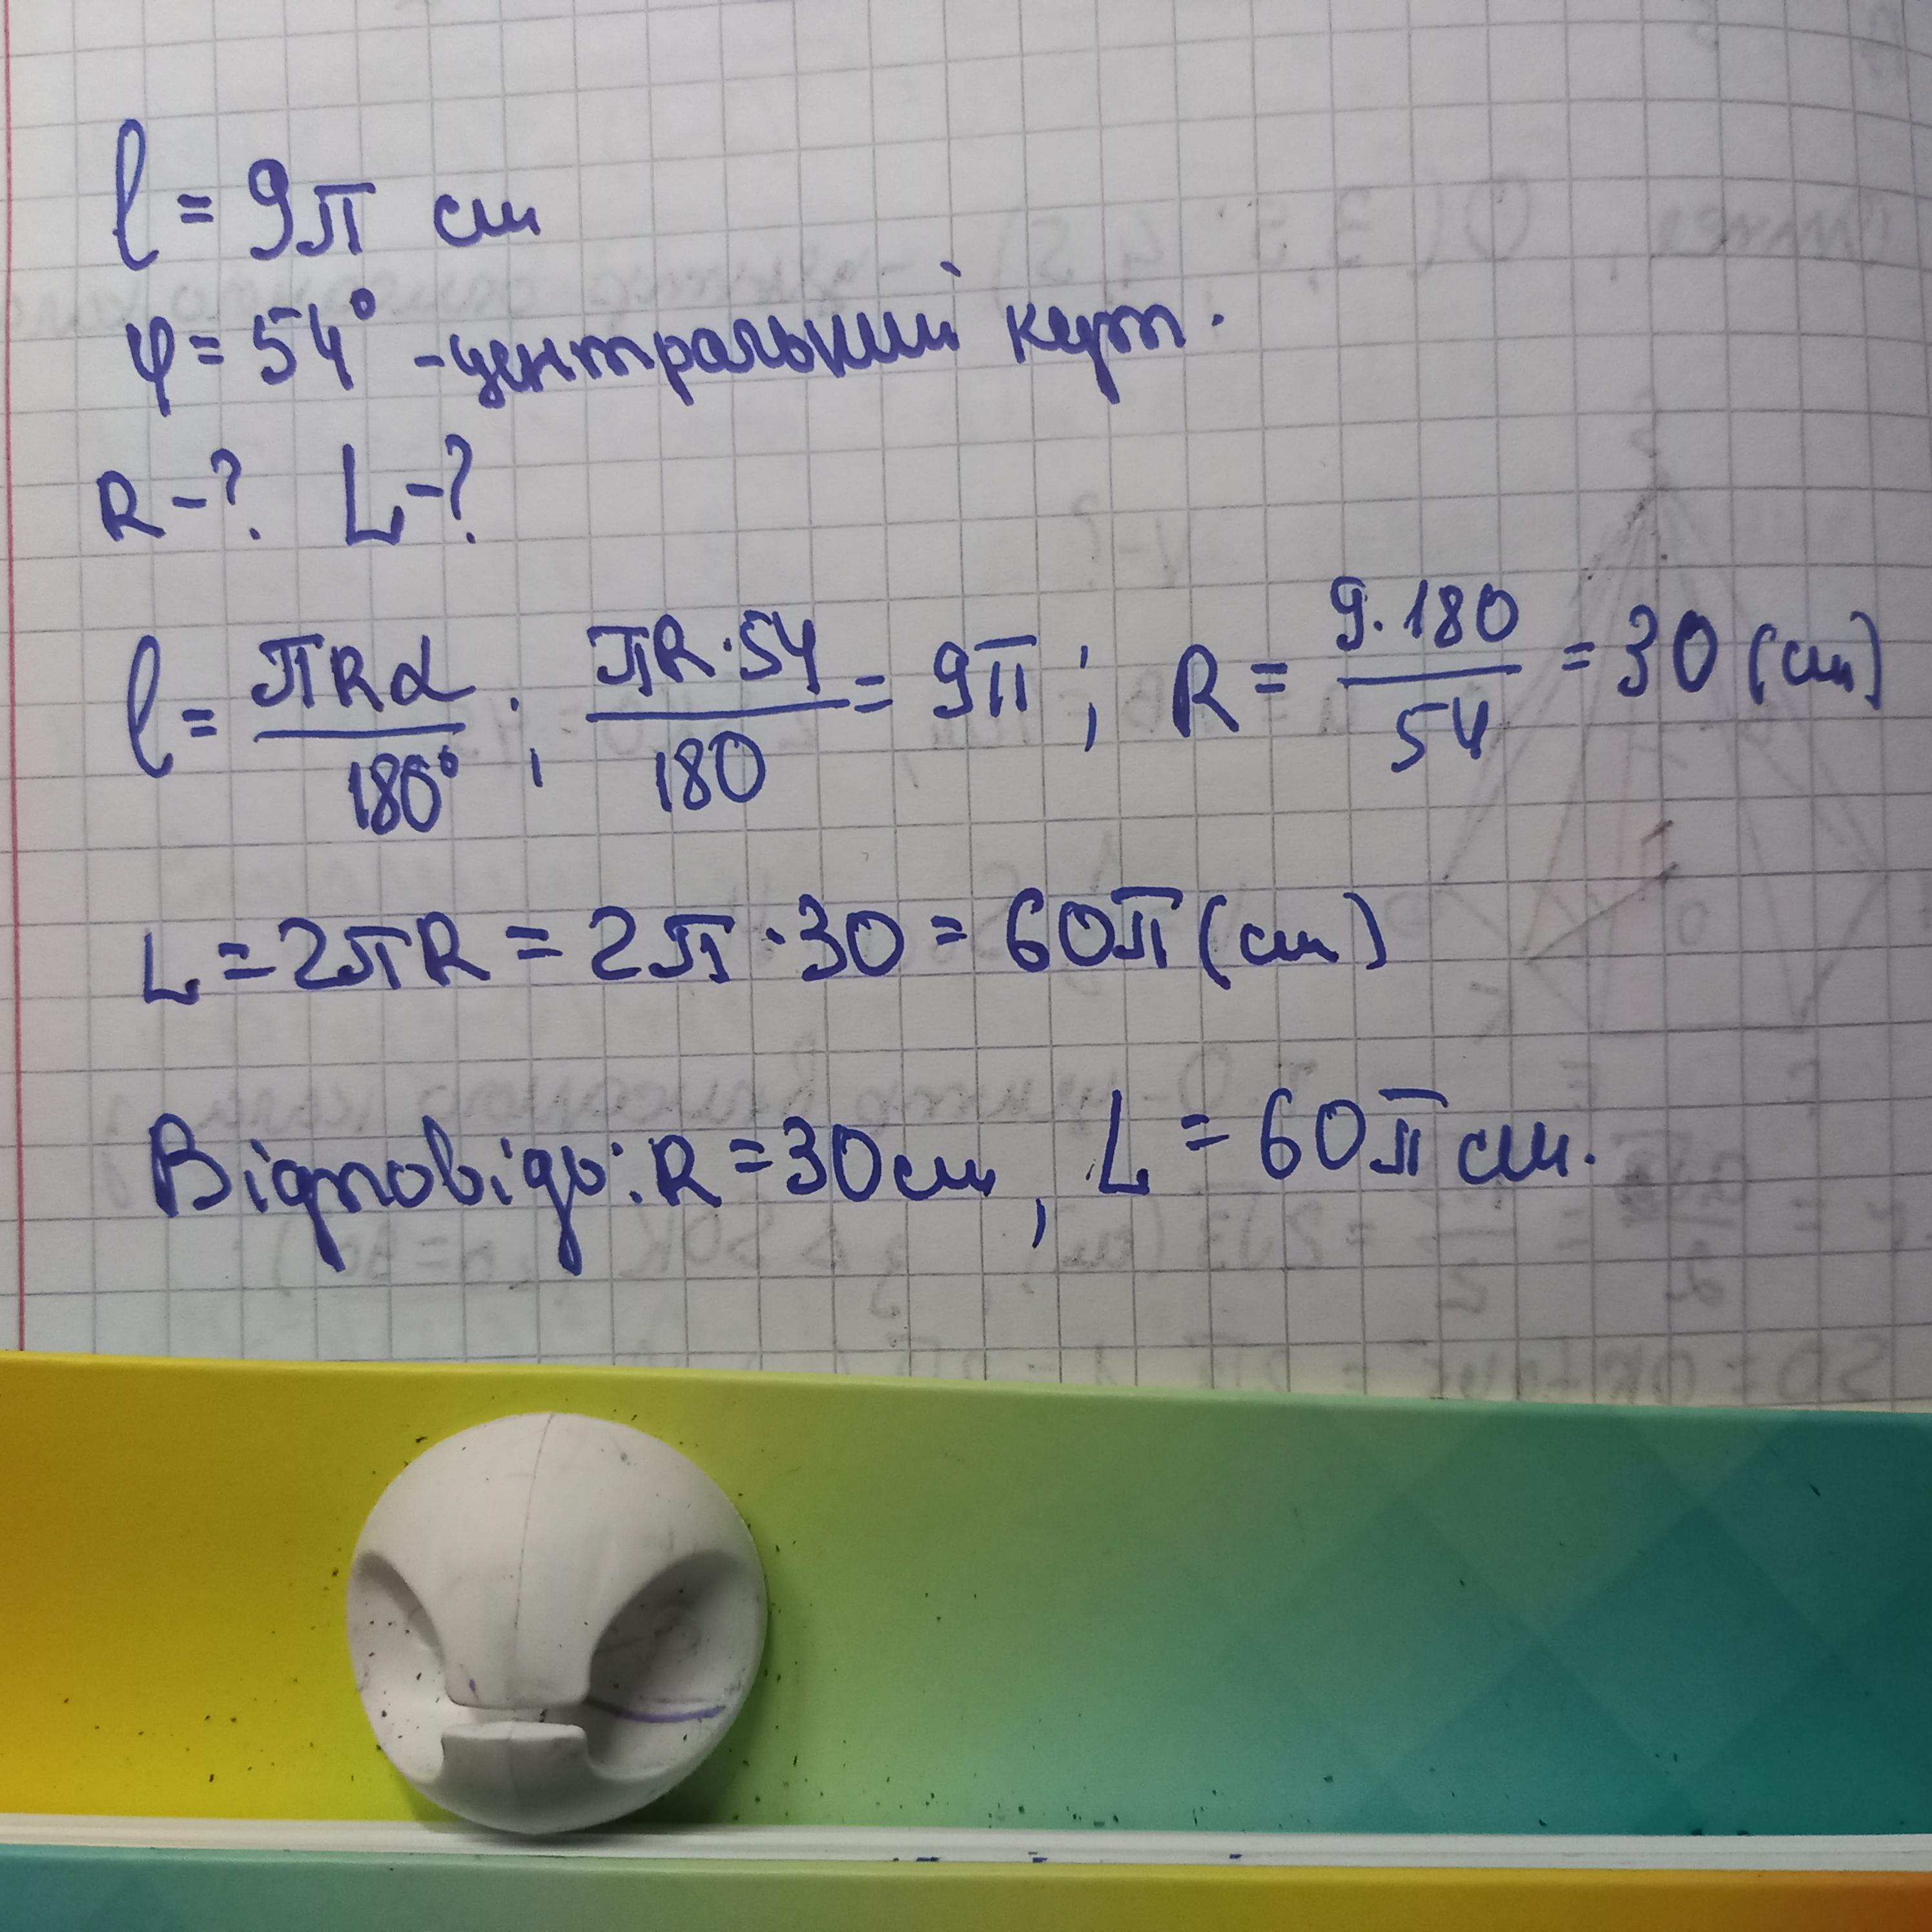 l = 9π см
φ = 54° - центральний кут.
R - ? L - ?
l = πRα/180° ; πR·54/180 = 9π ; R = 9·180/54 = 30 (см)
L = 2πR = 2π·30 = 60π (см)
Відповідь: R = 30 см, L = 60π см.